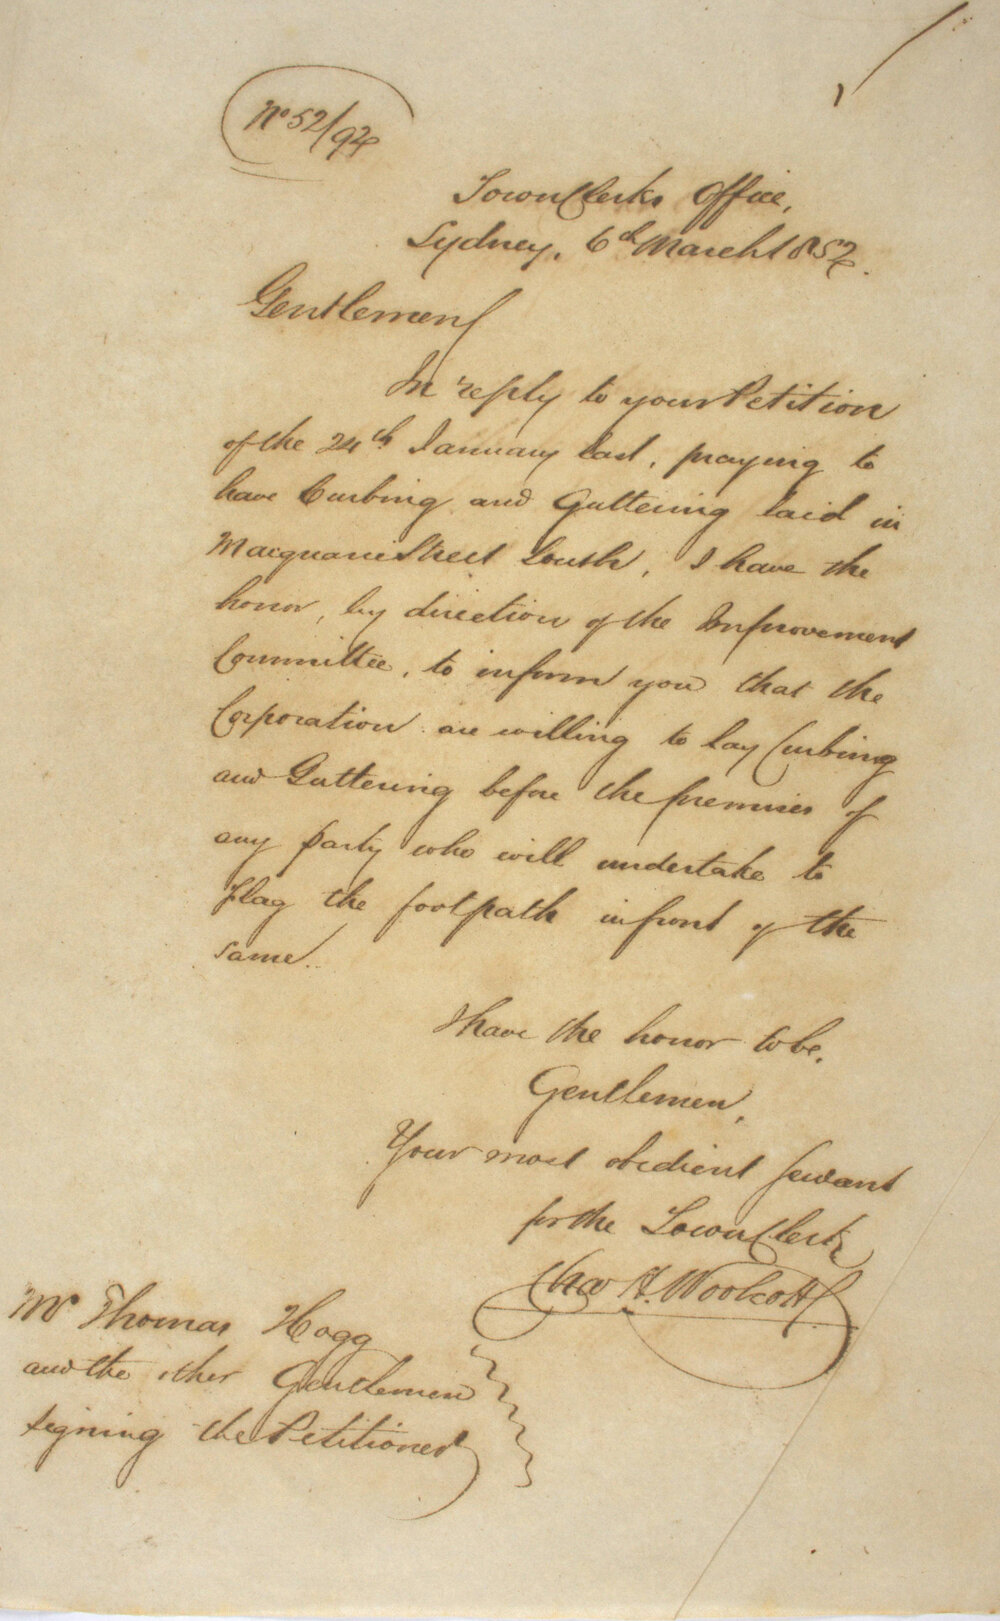 No 52/94
Town Clerks Office,
Sydney, 6th March 1852.
Gentlemen
In reply to your Petition
of the 24th January last, praying to
have Curbing and Guttering laid in
Macquarie Street South, I have the
honor, by direction of the Improvement
Committee, to inform you that the
Corporation are willing to lay Curbing
and Guttering before the premises of
any party who will undertake to
flag the footpath in front of the
same.
I have the honor to be,
Gentlemen,
Your most obedient servant
for the Town Clerk
Chas H. Woolcott
Mr Thomas Hogg
and the other Gentlemen
signing the Petition